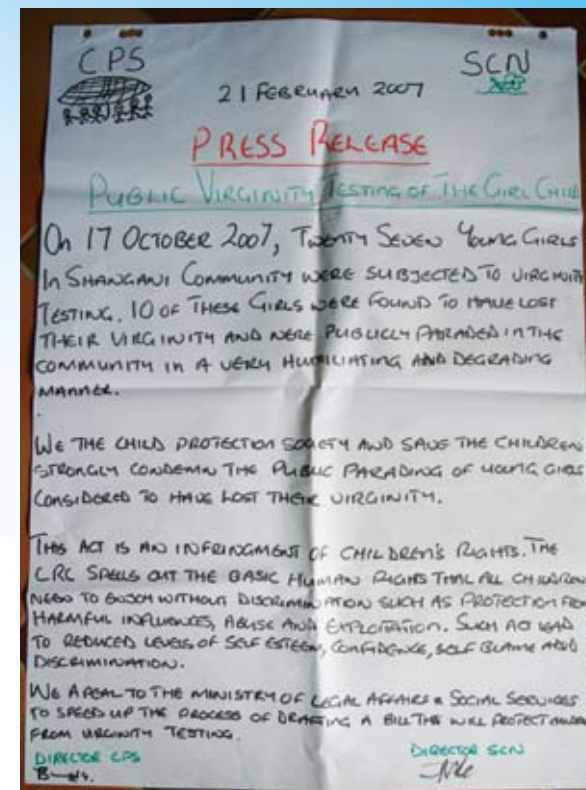 CPS
SCN
21 FEBRUARY 2007
PRESS RELEASE
PUBLIC VIRGINITY TESTING OF THE GIRL CHILD
On 17 OCTOBER 2007, TWENTY SEVEN YOUNG GIRLS
IN SHANGANI COMMUNITY WERE SUBJECTED TO VIRGINITY
TESTING. 10 OF THESE GIRLS WERE FOUND TO HAVE LOST
THEIR VIRGINITY AND WERE PUBLICLY PARADED IN THE
COMMUNITY IN A VERY HUMILIATING AND DEGRADING
MANNER.
WE THE CHILD PROTECTION SOCIETY AND SAVE THE CHILDREN
STRONGLY CONDEMN THE PUBLIC PARADING OF YOUNG GIRLS
CONSIDERED TO HAVE LOST THEIR VIRGINITY.
THIS ACT IS AN INFRINGMENT OF CHILDREN'S RIGHTS. THE
CRC SPELLS OUT THE BASIC HUMAN RIGHTS THAT ALL CHILDREN
NEED TO WITHOUT DISCRIMINATION SUCH AS PROTECTION
HARMFUL INFLUENCES, ABUSE AND EXPLOITATION. SUCH LEAD
TO REDUCED LEVELS OF SELF ESTEEM, CONFIDENCE, SELF BLAME AND
DISCRIMINATION.
WE APEAL TO THE MINISTRY OF LEGAL AFFAIRS & SOCIAL SERVICES
TO SPEED UP THE PROCESS OF DRAFTING A BILL WILL PROTECT
FROM VIRGINITY TESTING.
DIRECTOR CPS
DIRECTOR SCN